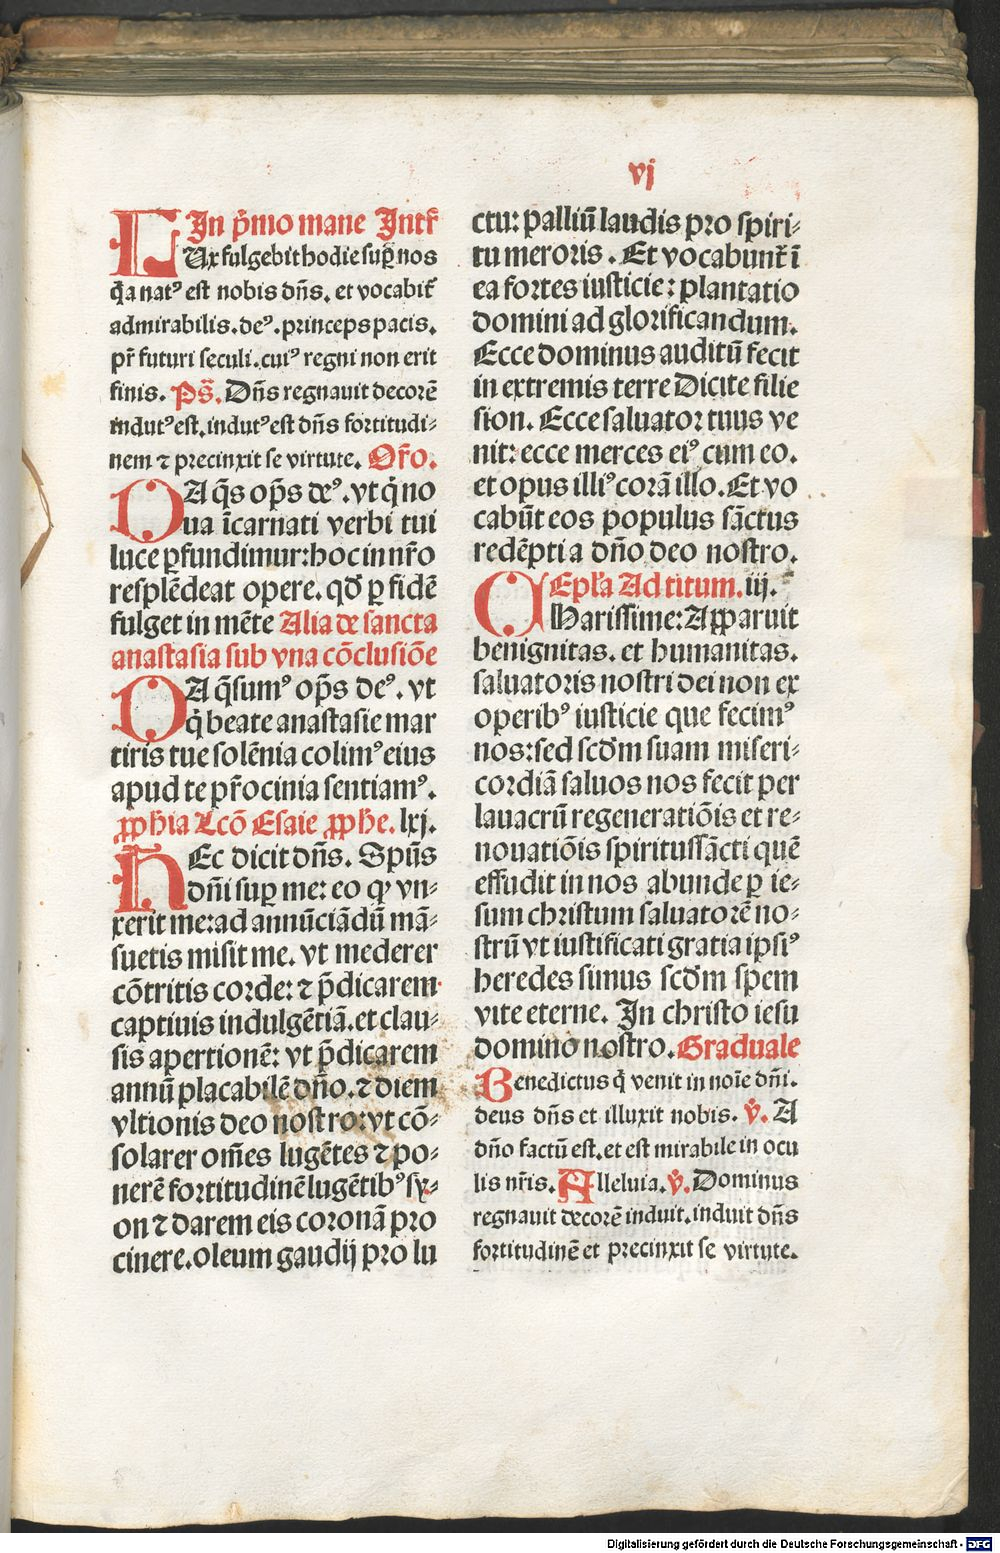 vj
In p̄mo mane Intꝛ̄
LUx fulgebit hodie suꝑ nos
q̄a natꝰ est nobis dn̄s. et vocabit᷑
admirabilis.deꝰ.princeps pacis.
pr̄ futuri seculi.cuiꝰ regni non erit
finis. Ps̄. Dn̄s regnauit decorē
indutꝰ est.indutꝰ est dn̄s fortitudi⸗
nem ⁊ precinxit se virtute. Or̄o.
DA q̄s op̄s deꝰ.vt q̇ no
ua īcarnati verbi tui
luce ꝑfundimur:hoc in nr̄o
resplēdeat opere. qd̄ ꝑ fidē
fulget in mēte Alia de sancta
anastasia sub vna cōclusiōe
DA q̄sumꝰ op̄s deꝰ. vt
q̇ beate anastasie mar
tiris tue solēnia colimꝰ eius
apud te pr̄ocinia sentiamꝰ.
ꝓph̄ia Lcō Esaie ꝓphe. lxj.
HEc dicit dn̄s. Spūs
dn̄i suꝑ me: eo ꝙ vn⸗
xerit me:ad annūciādū mā⸗
suetis misit me. vt mederer
cōtritis corde: ⁊ p̄dicarem
captiuis indulgētiā.et clau⸗
sis apertionē: vt p̄dicarem
annū placabilē dn̄o.⁊ diem
vltionis deo nostro:vt cō⸗
solarer om̄es lugētes ⁊ po⸗
nerē fortitudinē lugētibꝰ sy⸗
on ⁊ darem eis coronā pro
cinere.oleum gaudij pro lu
ctu: palliū laudis pro spiri⸗
tu meroris. Et vocabunt᷑ ī
ea fortes iusticie: plantatio
domini ad glorificandum.
Ecce dominus auditū fecit
in extremis terre Dicite filie
sion. Ecce saluator tuus ve
nit: ecce merces eiꝰ cum eo.
et opus illiꝰ corā illo. Et vo
cabūt eos populus sāctus
redēpti a dn̄o deo nostro.
Epl̄a Ad titum. iij.
CHarissime: Apparuit
benignitas. et humanitas.
saluatoris nostri dei non ex
operibꝰ iusticie que fecimꝰ
nos:sed scd̄m suam miseri⸗
cordiā saluos nos fecit per
lauacrū regeneratiōis et re⸗
nouatiōis spiritussācti quē
effudit in nos abunde ꝑ ie⸗
sum christum saluatorē no⸗
strū vt iustificati gratia ipsiꝰ
heredes simus scd̄m spem
vite eterne. In christo iesu
domino nostro. Graduale
Benedictus q̇ venit in noīe dn̄i.
deus dn̄s et illuxit nobis. v̄. A
dn̄o factū est.et est mirabile in ocu
lis nr̄is. Alleluia. v̄. Dominus
regnauit decorē induit.induit dn̄s
fortitudinē et precinxit se virtute.
Digitalisierung gefördert durch die Deutsche Forschungsgemeinschaft - DFG